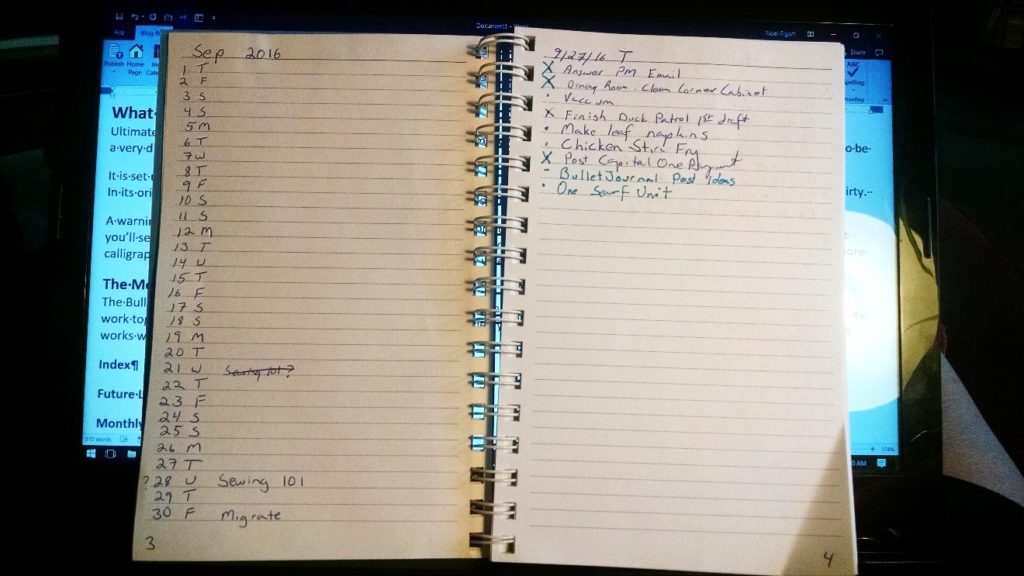 Document1 - Word
File
Blog Po
Noel Figart
Share
Publish
Home
Page
ABC
Spelling
What
Ultimate
a·very·d
It·is·set·
In·its·ori
A·warnin
you'll·se
calligrap
The·Me
The·Bull
work·tog
works·w
Index¶
Future·L
Monthly
o·be·
irty.··
372 words
174%
Sep 2016
1 T
2 F
3 S
4 S
5 M
6 T
7 W
8 T
9 F
10 S
11 S
12 M
13 T
14 W
15 T
16 F
17 S
18 S
19 M
20 T
21 W Sewing 101?
22 T
23 F
24 S
25 S
26 M
27 T
? 28 W Sewing 101
29 T
30 F Migrate
3
9/27/16 T
X Answer PM Email
X Dining Room. Clean Corner Cabinet
· Vacuum
X Finish Duck Patrol 1st draft
· Make leaf napkins
· Chicken Stir Fry
X Post Capital One Payment
- Bullet Journal Post Ideas
· One Scarf Unit
4